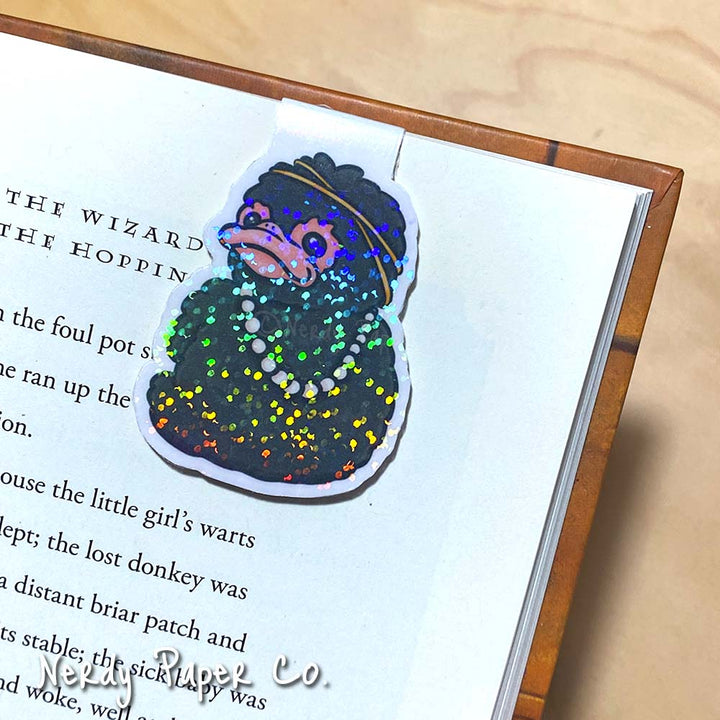 THE WIZARD
THE HOPPIN
the foul pot
ran up the
ion.
ouse the little girl's warts
lept; the lost donkey was
a distant briar patch and
its stable; the sick baby was
nd woke, well
Nerdy Paper Co.